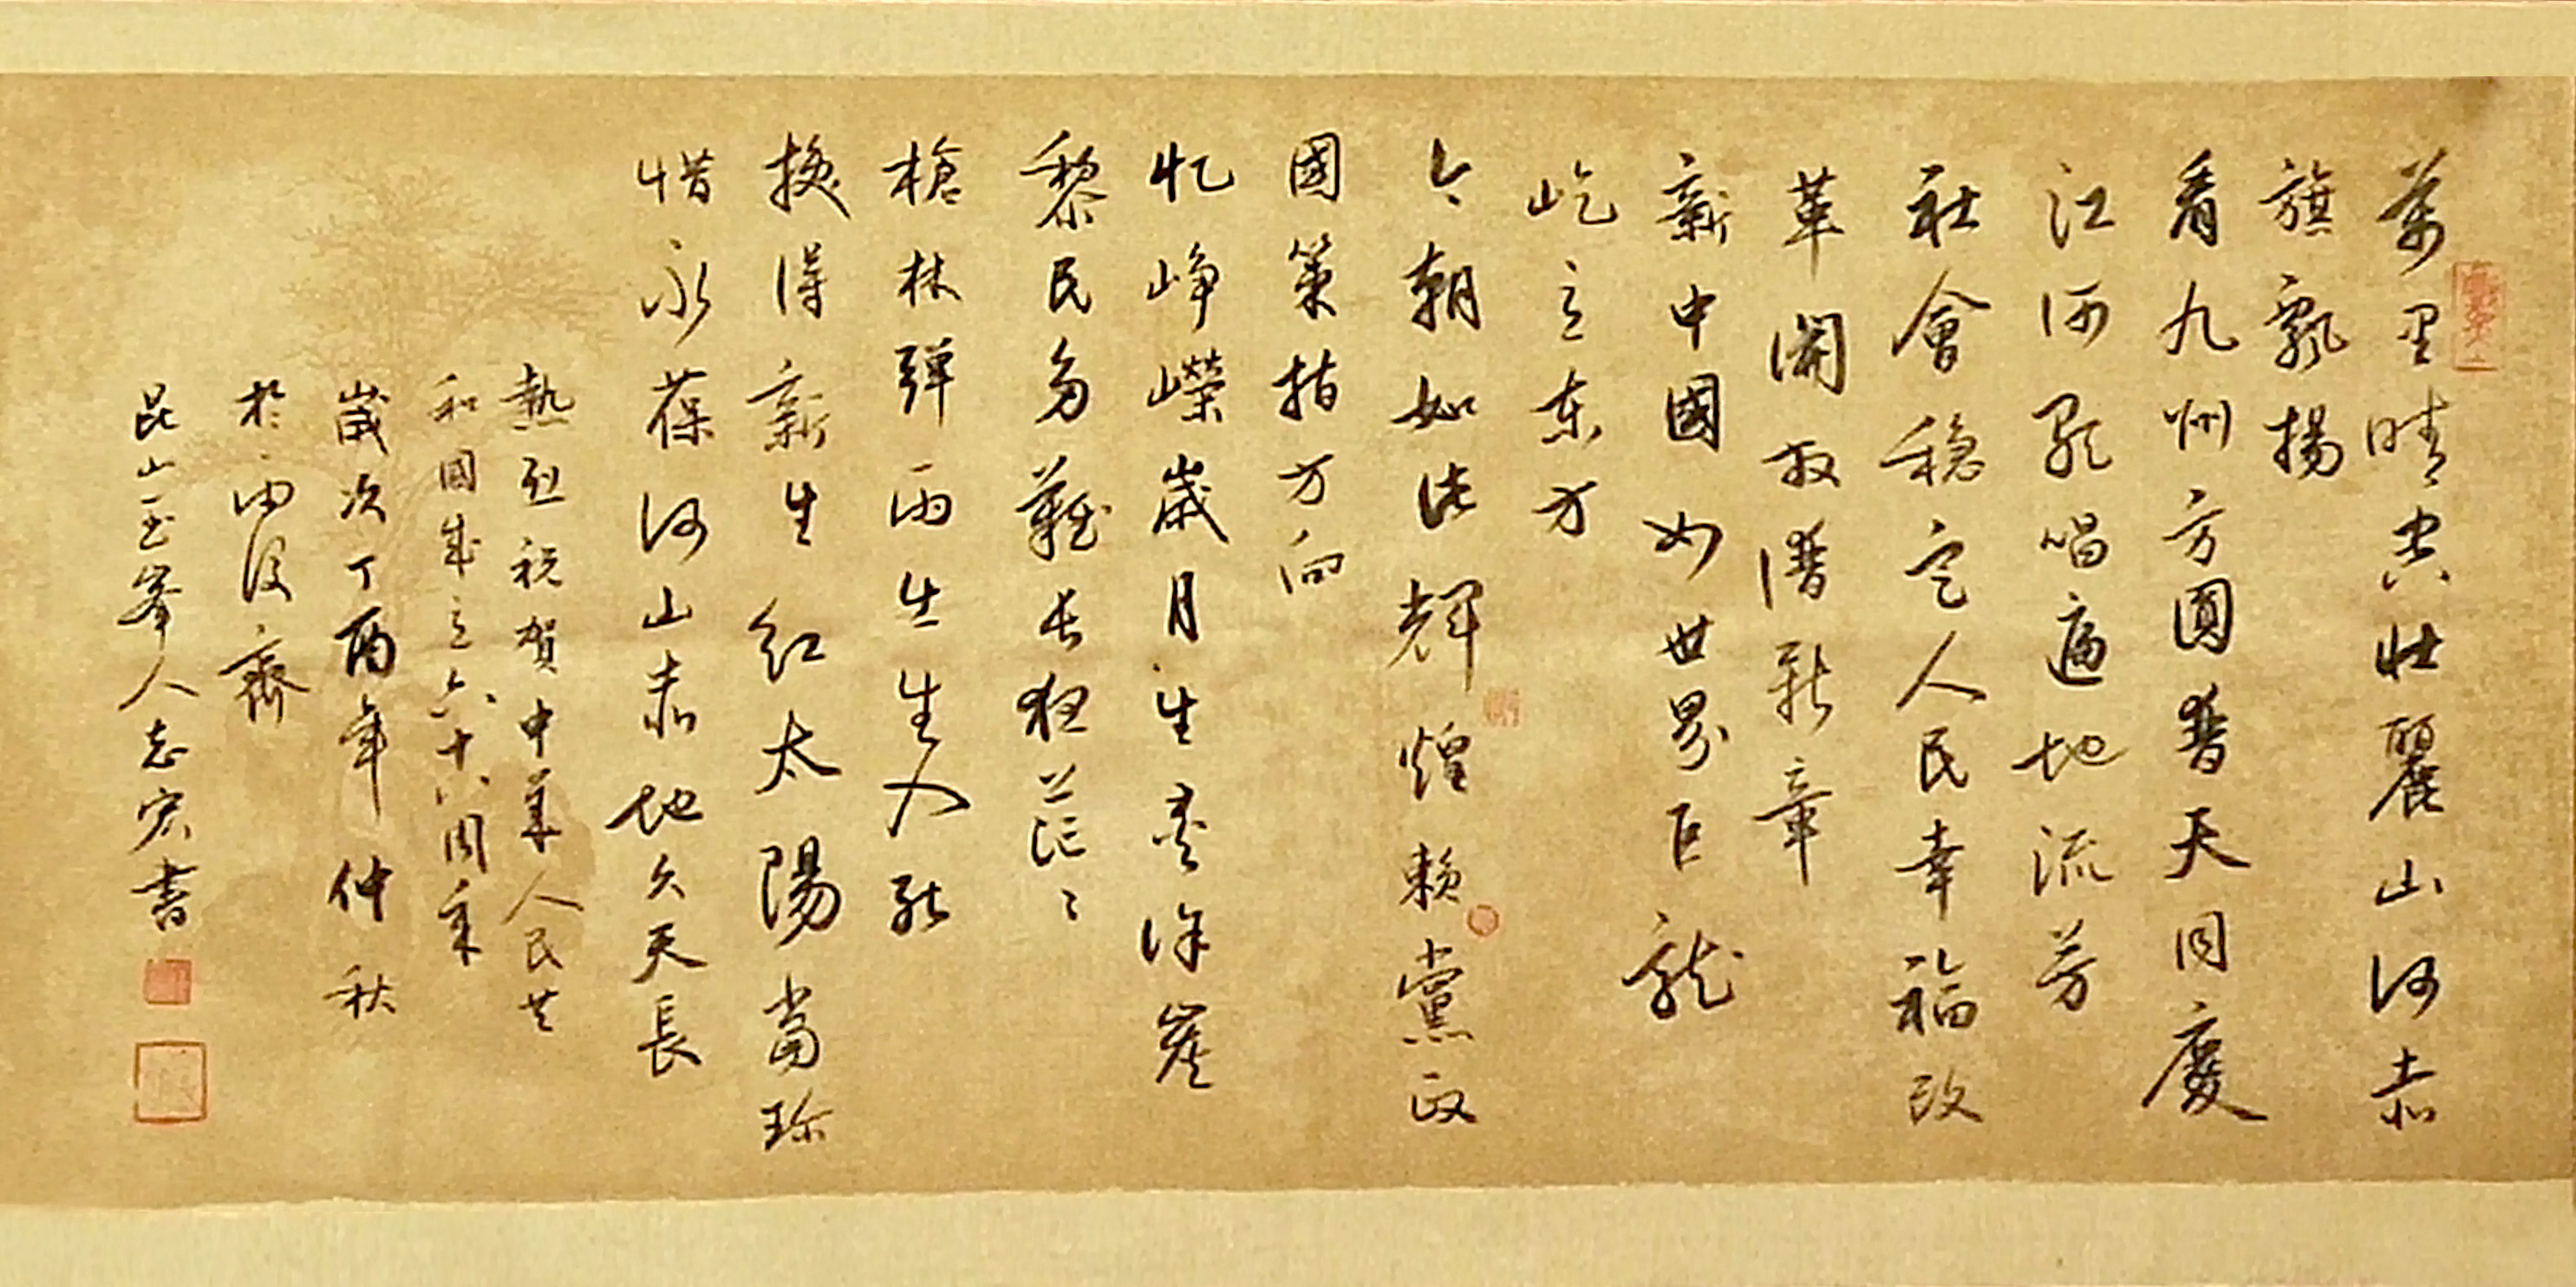 萬里晴空壯麗山河赤
旗飄揚
看九州方圓普天同慶
江河歌唱遍地流芳
社會穩定人民幸福改
革開放譜新章
新中國如世界巨龍
屹立東方
今朝如此輝煌賴黨政
國策指方向
忆崢嶸歲月生
黎民多難長狂茫々
槍林彈雨出生入死
換得新生紅太陽當珍
惜永葆河山赤地久天長
熱烈祝賀中華人民共
和國成立六十八周年
歲次丁酉年仲秋
於齋
昆山玉峯人志宏書